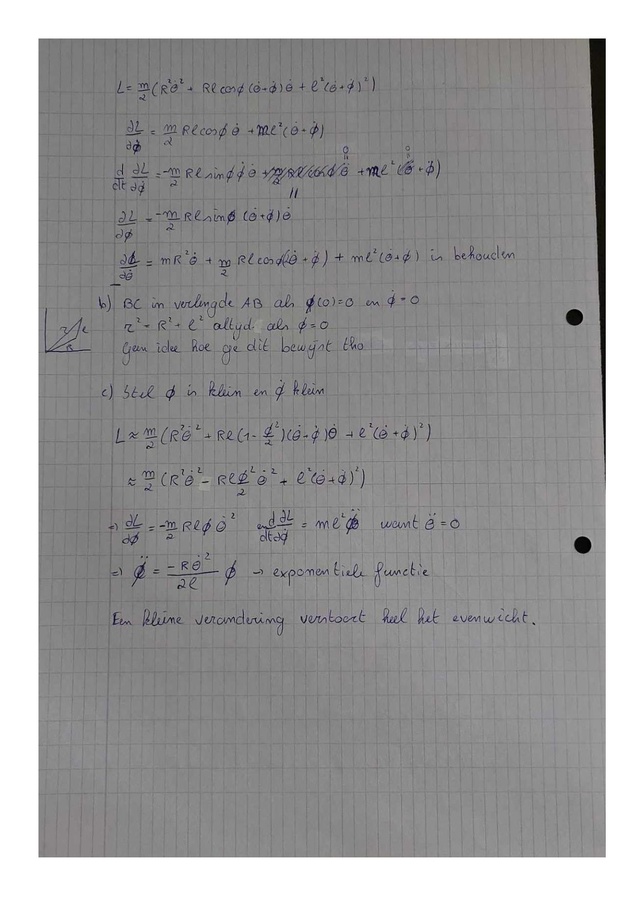 L = m/2 (R²θ̇² + Rl cosϕ (θ̇+ϕ̇)θ̇ + l²(θ̇+ϕ̇)²)
∂L/∂ϕ̇ = m/2 Rl cosϕ θ̇ + ml²(θ̇+ϕ̇)
d/dt ∂L/∂ϕ̇ = -m/2 Rl sinϕ ϕ̇ θ̇ + ml²(θ̈+ϕ̈)
0 0
=
∂L/∂ϕ = -m/2 Rl sinϕ (θ̇+ϕ̇)θ̇
∂L/∂θ̇ = mR²θ̇ + m/2 Rl cosϕ(2θ̇+ϕ̇) + ml²(θ̇+ϕ̇) is behouden
b) BC in verlengde AB als ϕ(0)=0 en ϕ̇=0
r² = R² + l² altijd als ϕ̇=0
r l
R
Geen idee hoe ge dit bewijst tho
c) Stel ϕ is klein en ϕ̇ klein
L ≈ m/2 (R²θ̇² + Rl(1-ϕ²/2)(θ̇+ϕ̇)θ̇ + l²(θ̇+ϕ̇)²)
≈ m/2 (R²θ̇² - Rlϕ²/2 θ̇² + l²(θ̇+ϕ̇)²)
=> ∂L/∂ϕ = -m/2 Rlϕ θ̇² en d/dt ∂L/∂ϕ̇ = ml²ϕ̈ want θ̈ = 0
=> ϕ̈ = -Rθ̇²/2l ϕ → exponentiele functie
Een kleine verandering verstoort heel het evenwicht.